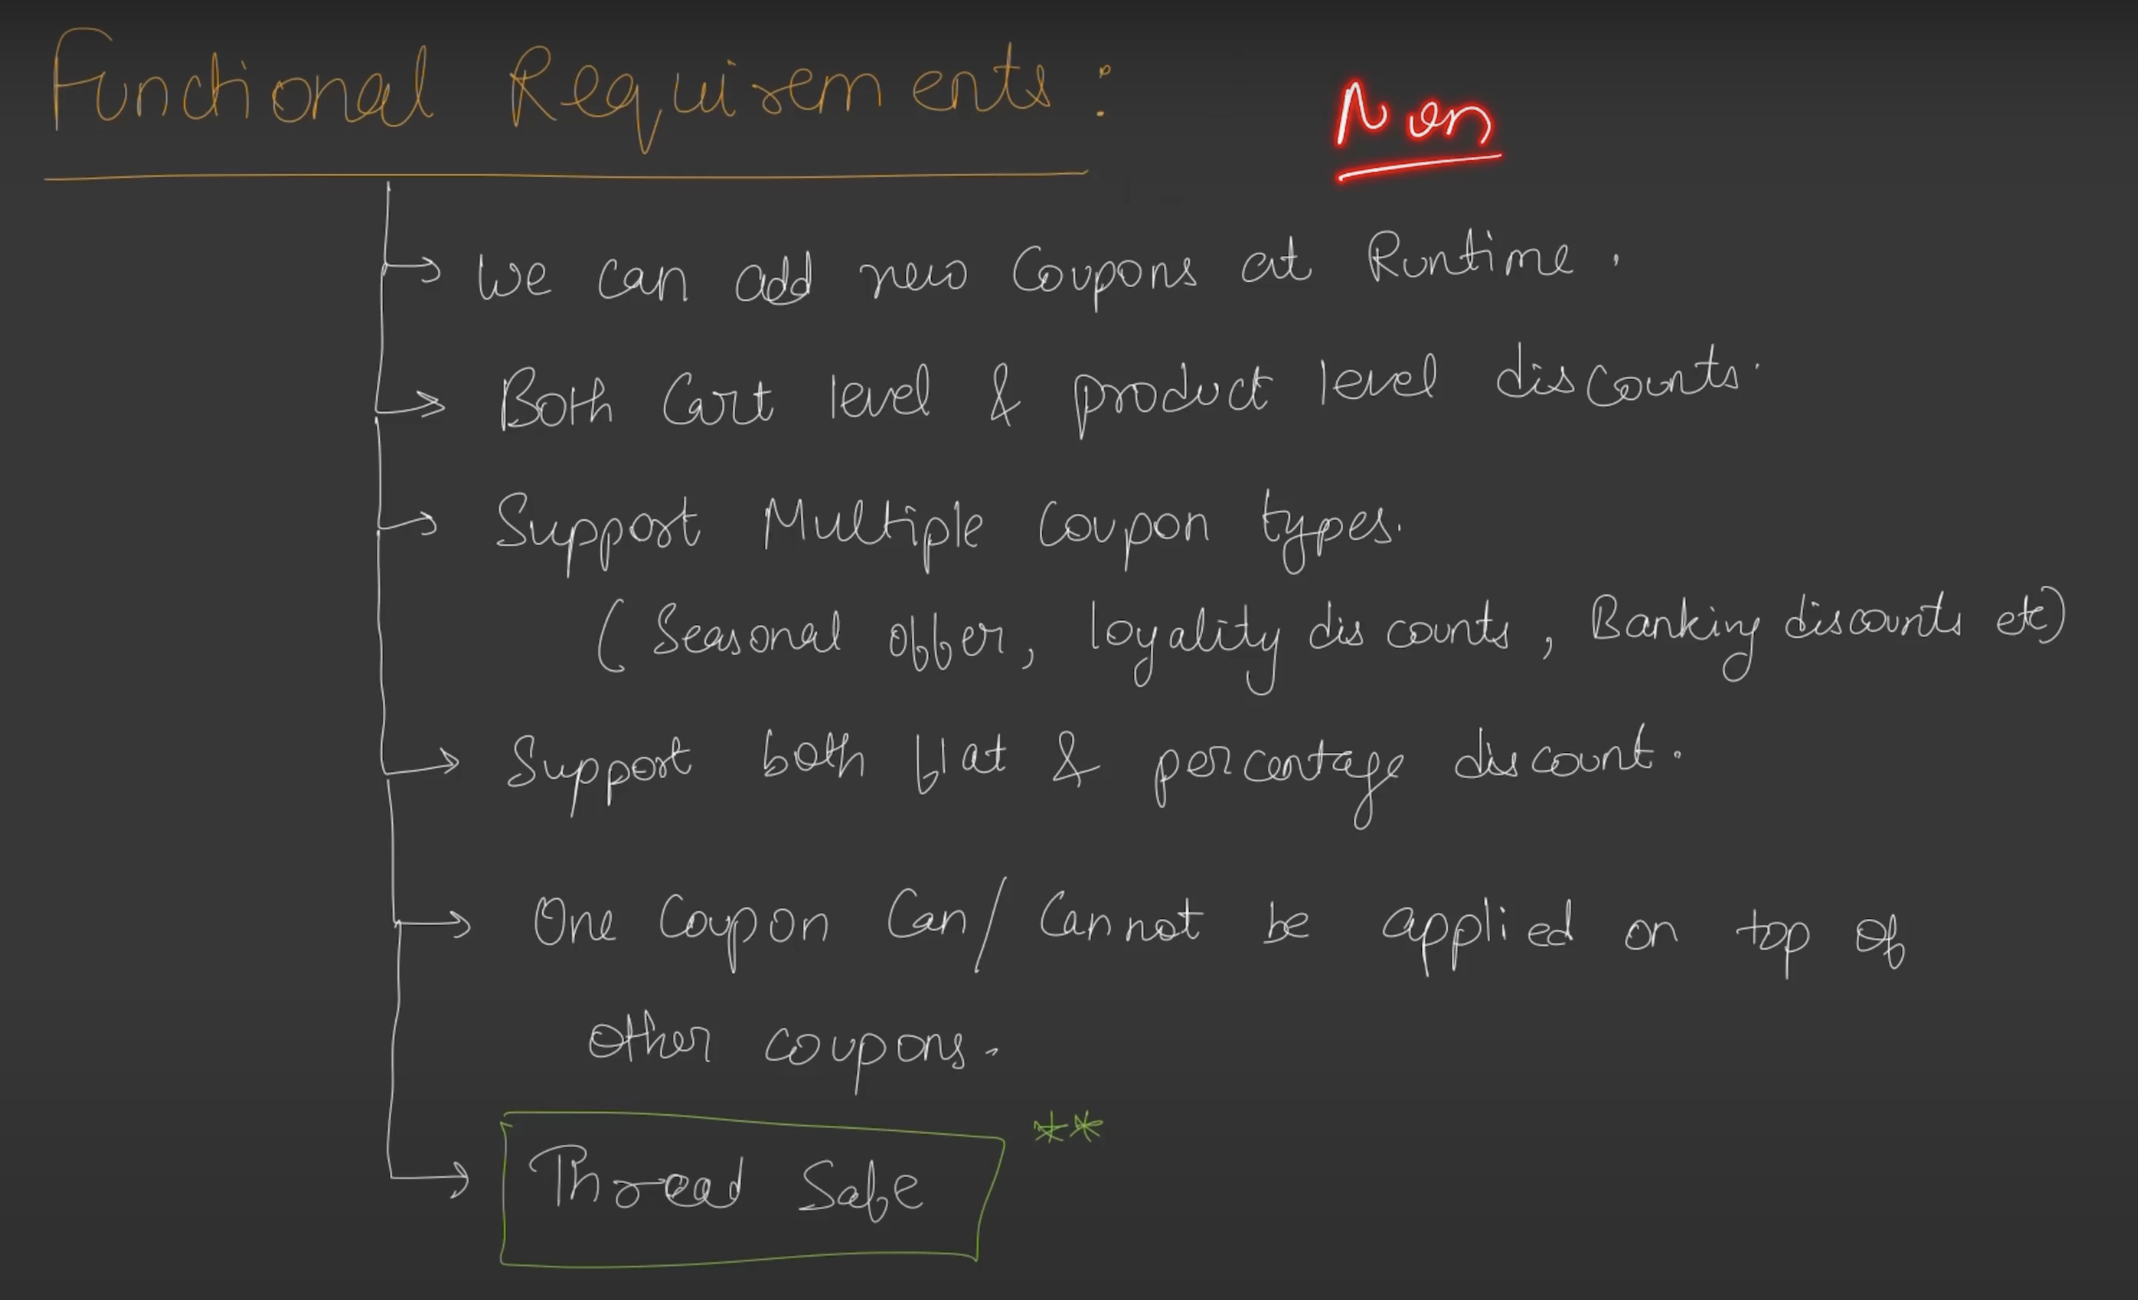 Functional Requirements :
Non
We can add new Coupons at Runtime.
Both Cart level & product level discounts.
Support Multiple Coupon types.
( Seasonal offer, loyality discounts, Banking discounts etc)
Support both flat & percentage discount.
One Coupon Can/Cannot be applied on top of
other coupons.
Thread Safe **